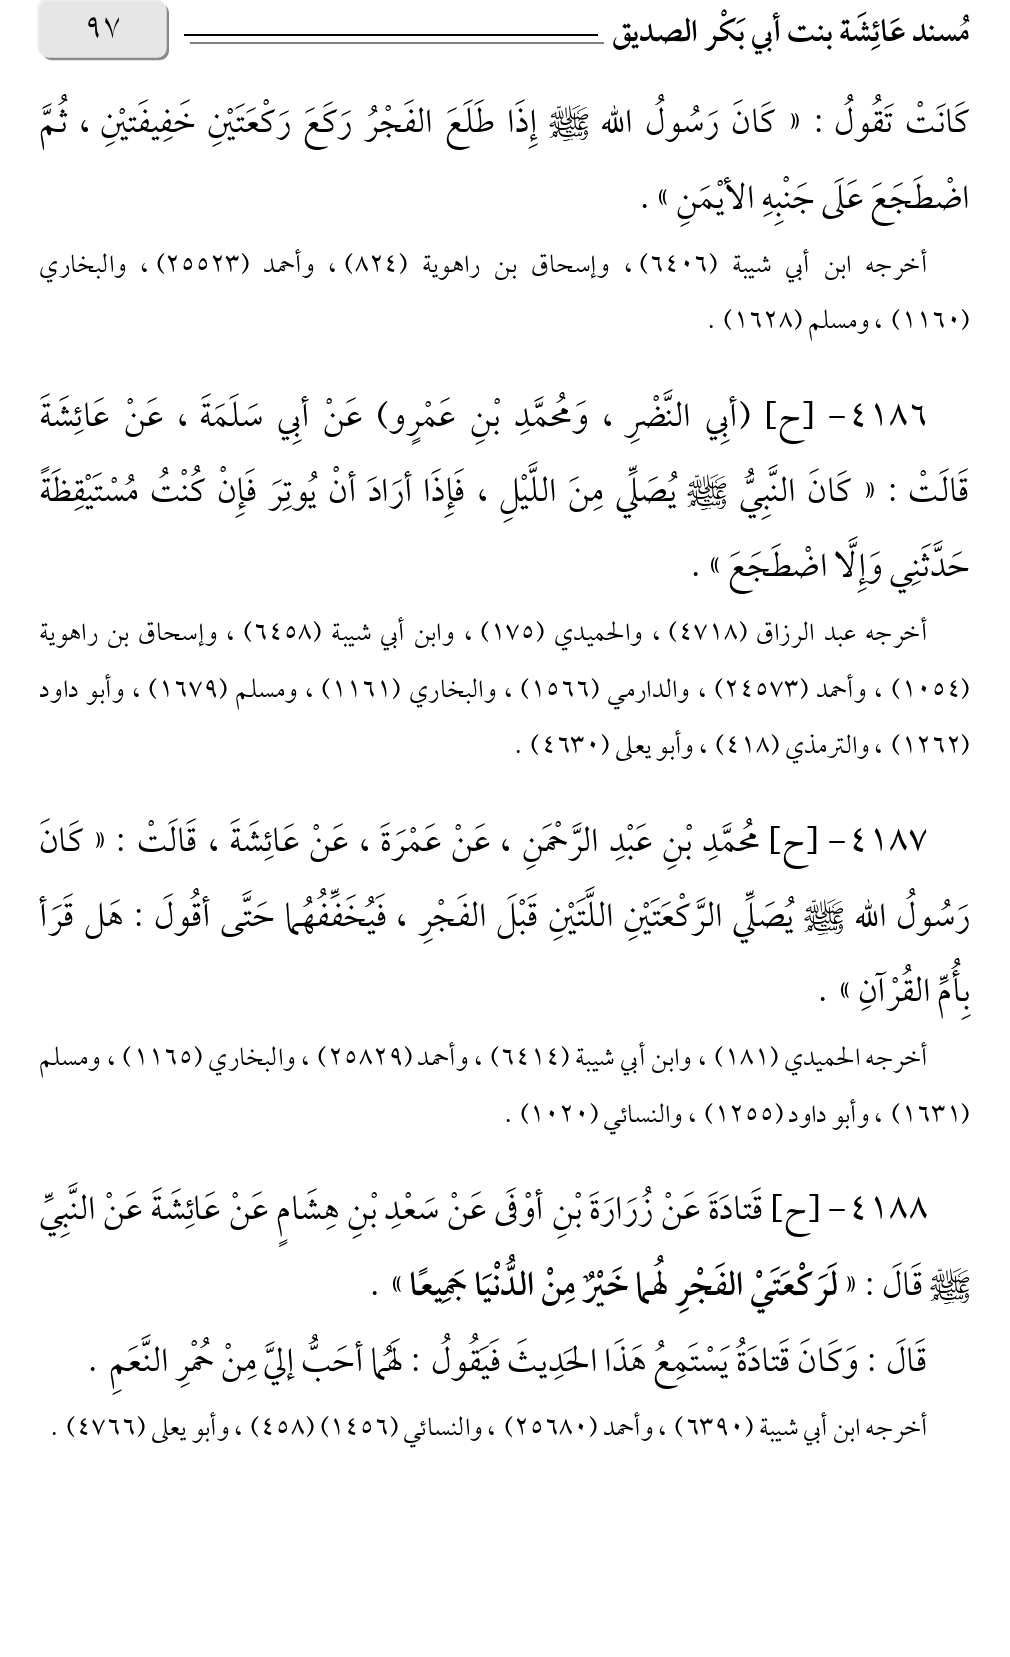 مُسند عَائِشَة بنت أبي بَكْر الصديق ٩٧
كَانَتْ تَقُولُ : « كَانَ رَسُولُ الله ﷺ إِذَا طَلَعَ الفَجْرُ رَكَعَ رَكْعَتَيْنِ خَفِيفَتيْنِ ، ثُمَّ
اضْطَجَعَ عَلَى جَنْبِهِ الأيْمَنِ » .
أخرجه ابن أبي شيبة (٦٤٠٦) ، وإسحاق بن راهوية (٨٢٤) ، وأحمد (٢٥٥٢٣) ، والبخاري
(١١٦٠) ، ومسلم (١٦٢٨) .
٤١٨٦- [ح] (أبِي النَّضْرِ ، وَمُحمَّدِ بْنِ عَمْرٍو) عَنْ أبِي سَلَمَةَ ، عَنْ عَائِشَةَ
قَالَتْ : « كَانَ النَّبِيُّ ﷺ يُصَلِّي مِنَ اللَّيْلِ ، فَإِذَا أرَادَ أنْ يُوتِرَ فَإِنْ كُنْتُ مُسْتَيْقِظَةً
حَدَّثَنِي وَإِلَّا اضْطَجَعَ » .
أخرجه عبد الرزاق (٤٧١٨) ، والحميدي (١٧٥) ، وابن أبي شيبة (٦٤٥٨) ، وإسحاق بن راهوية
(١٠٥٤) ، وأحمد (٢٤٥٧٣) ، والدارمي (١٥٦٦) ، والبخاري (١١٦١) ، ومسلم (١٦٧٩) ، وأبو داود
(١٢٦٢) ، والترمذي (٤١٨) ، وأبو يعلى (٤٦٣٠) .
٤١٨٧- [ح] مُحمَّدِ بْنِ عَبْدِ الرَّحْمَنِ ، عَنْ عَمْرَةَ ، عَنْ عَائِشَةَ ، قَالَتْ : « كَانَ
رَسُولُ الله ﷺ يُصَلِّي الرَّكْعَتَيْنِ اللَّتَيْنِ قَبْلَ الفَجْرِ ، فَيُخَفِّفُهُما حَتَّى أقُولَ : هَل قَرَأ
بِأُمِّ القُرْآنِ » .
أخرجه الحميدي (١٨١) ، وابن أبي شيبة (٦٤١٤) ، وأحمد (٢٥٨٢٩) ، والبخاري (١١٦٥) ، ومسلم
(١٦٣١) ، وأبو داود (١٢٥٥) ، والنسائي (١٠٢٠) .
٤١٨٨- [ح] قَتادَةَ عَنْ زُرَارَةَ بْنِ أوْفَى عَنْ سَعْدِ بْنِ هِشَامٍ عَنْ عَائِشَةَ عَنْ النَّبِيِّ
ﷺ قَالَ : « لَرَكْعَتَيْ الفَجْرِ لَهُما خَيْرٌ مِنْ الدُّنْيَا جَمِيعًا » .
قَالَ : وَكَانَ قَتادَةُ يَسْتَمِعُ هَذَا الحَدِيثَ فَيَقُولُ : لَهُمَا أحَبُّ إليَّ مِنْ حُمْرِ النَّعَمِ .
أخرجه ابن أبي شيبة (٦٣٩٠) ، وأحمد (٢٥٦٨٠) ، والنسائي (١٤٥٦) (٤٥٨) ، وأبو يعلى (٤٧٦٦) .